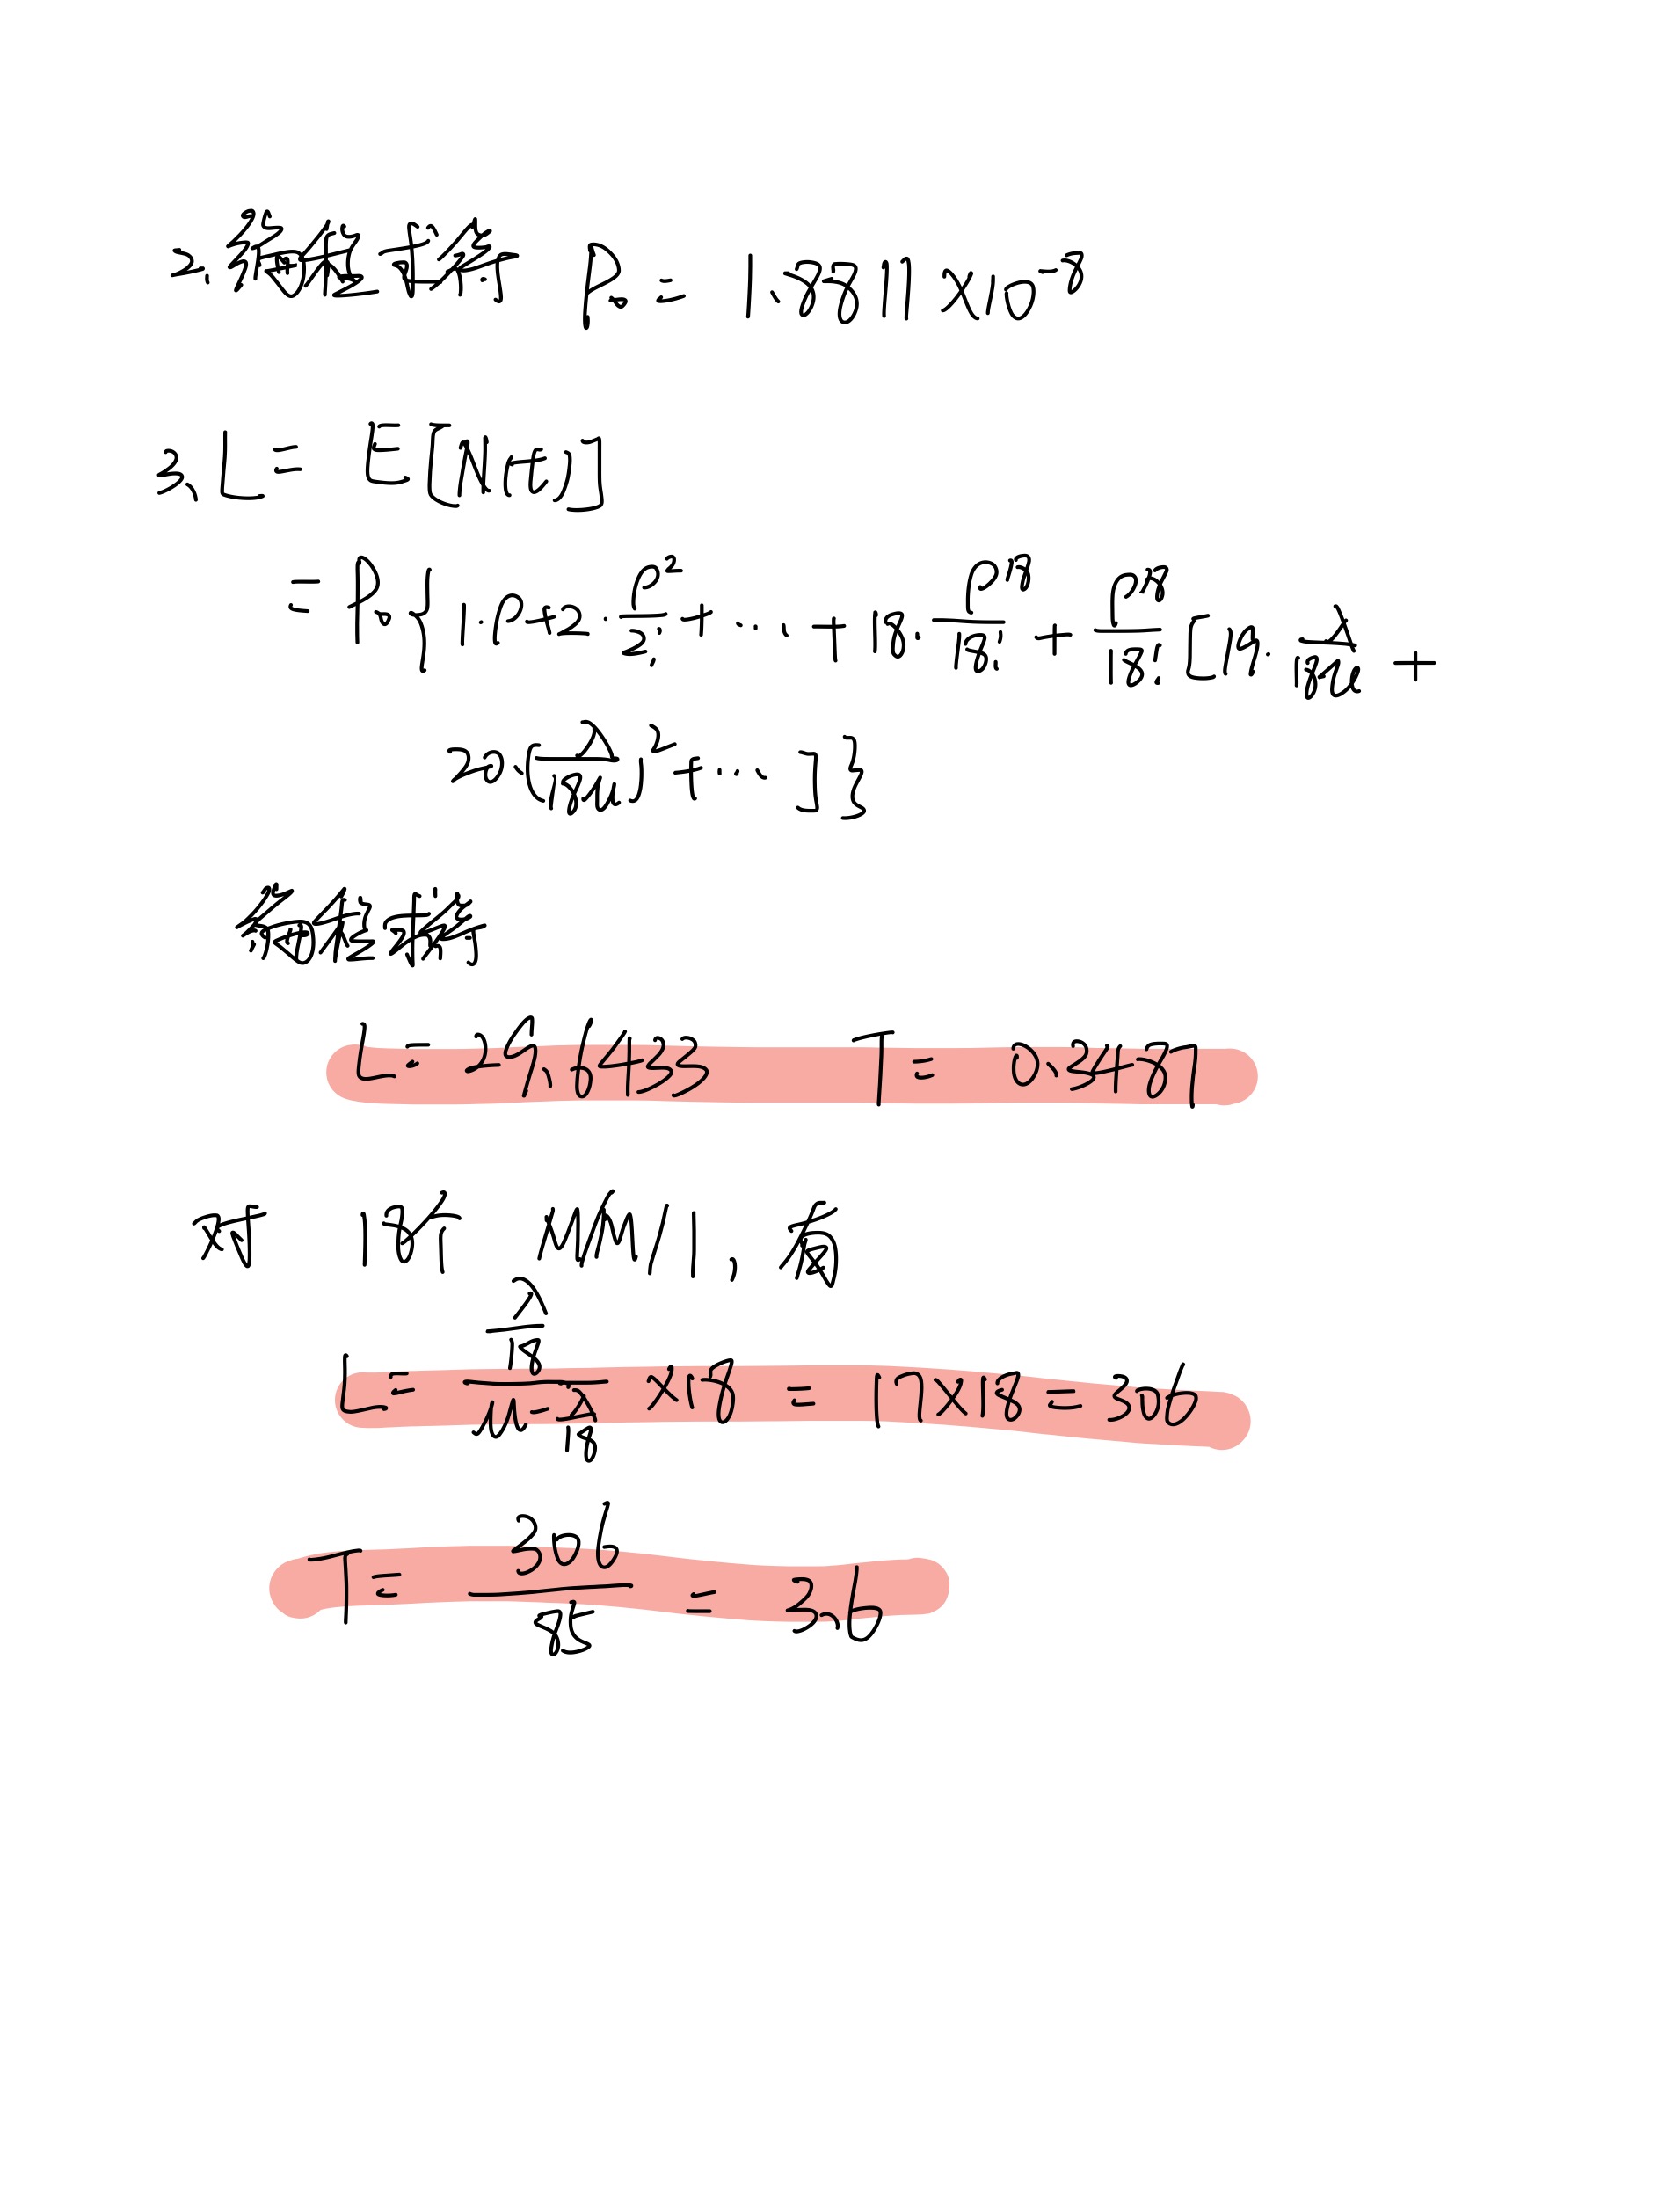 2. 编程求得 P₀ = 1.8811 × 10⁻⁸
3. L = E[N(t)]
= P₀{1·ρ+2·ρ²/2!+···+18·ρ¹⁸/18!+ρ¹⁸/18![19·λ/18μ+
20·(λ/18μ)²+···]}
编程求得
L = 29.6433 T = 0.3487
对 18个 M/M/1, 有
L = (λ/18)/(μ-λ/18) × 18 = 17×18 = 306
T = 306/85 = 3.6